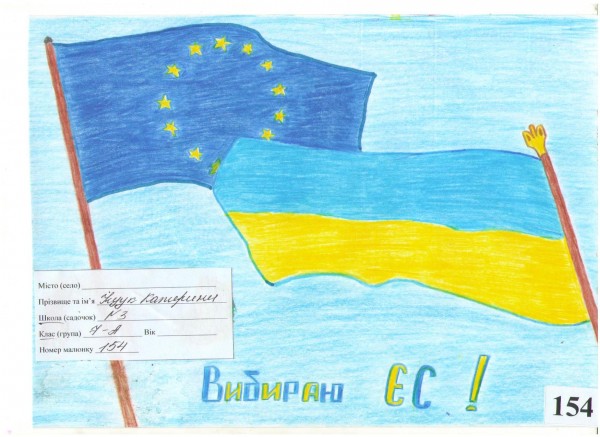 Місто (село)
Прізвище та ім'я Цуук Катерини
Школа (садочок) №3
Клас (група) 7-А Вік
Номер малюнку 154
Вибираю ЄС !
154